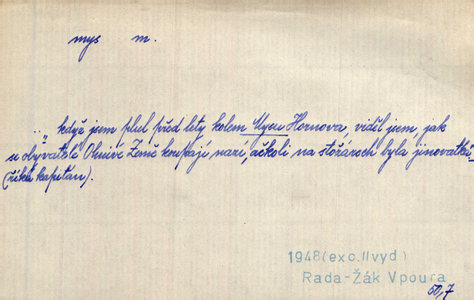 mys m.
..."když jsem plul před lety kolem Mysu Hornova, viděl jsem, jak
se obyvatelé Ohnivé Země koupají nazí, ačkoli na stožárech byla jinovatka
(říká kapitán).
1948 (exc. II vyd)
Rada-Žák Vpoura
50,7